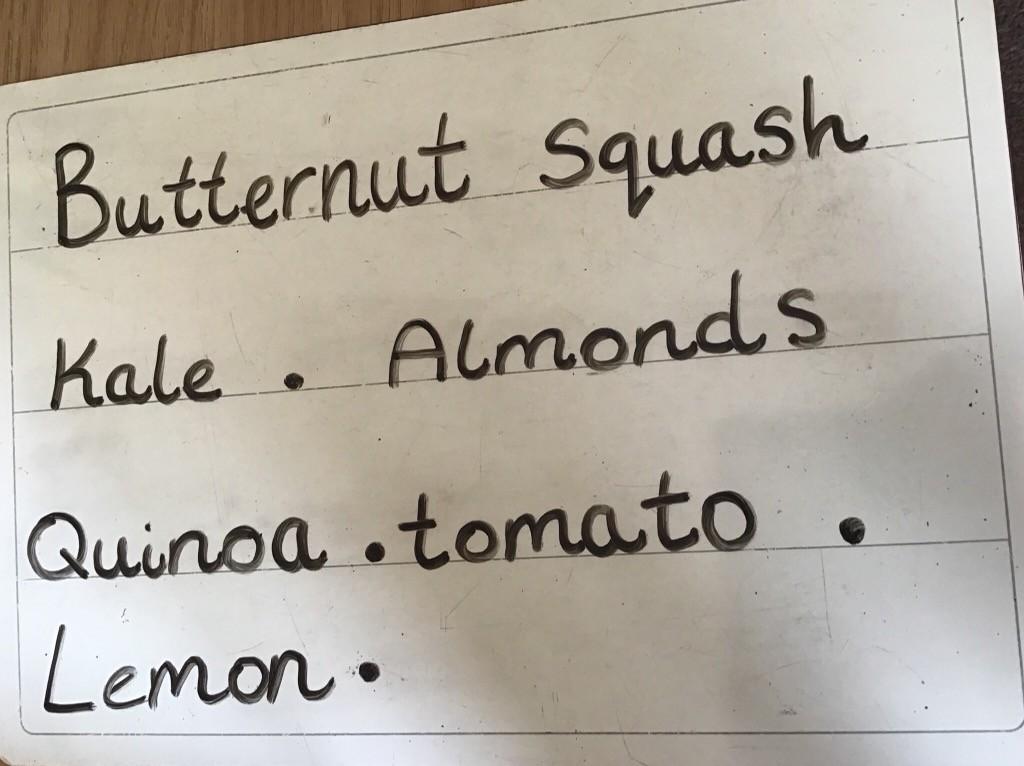 Butternut Squash
Kale . Almonds
Quinoa . tomato .
Lemon .